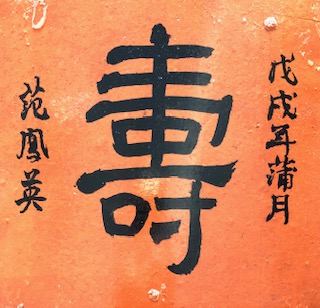 戊戌年蒲月
壽
范鳳英